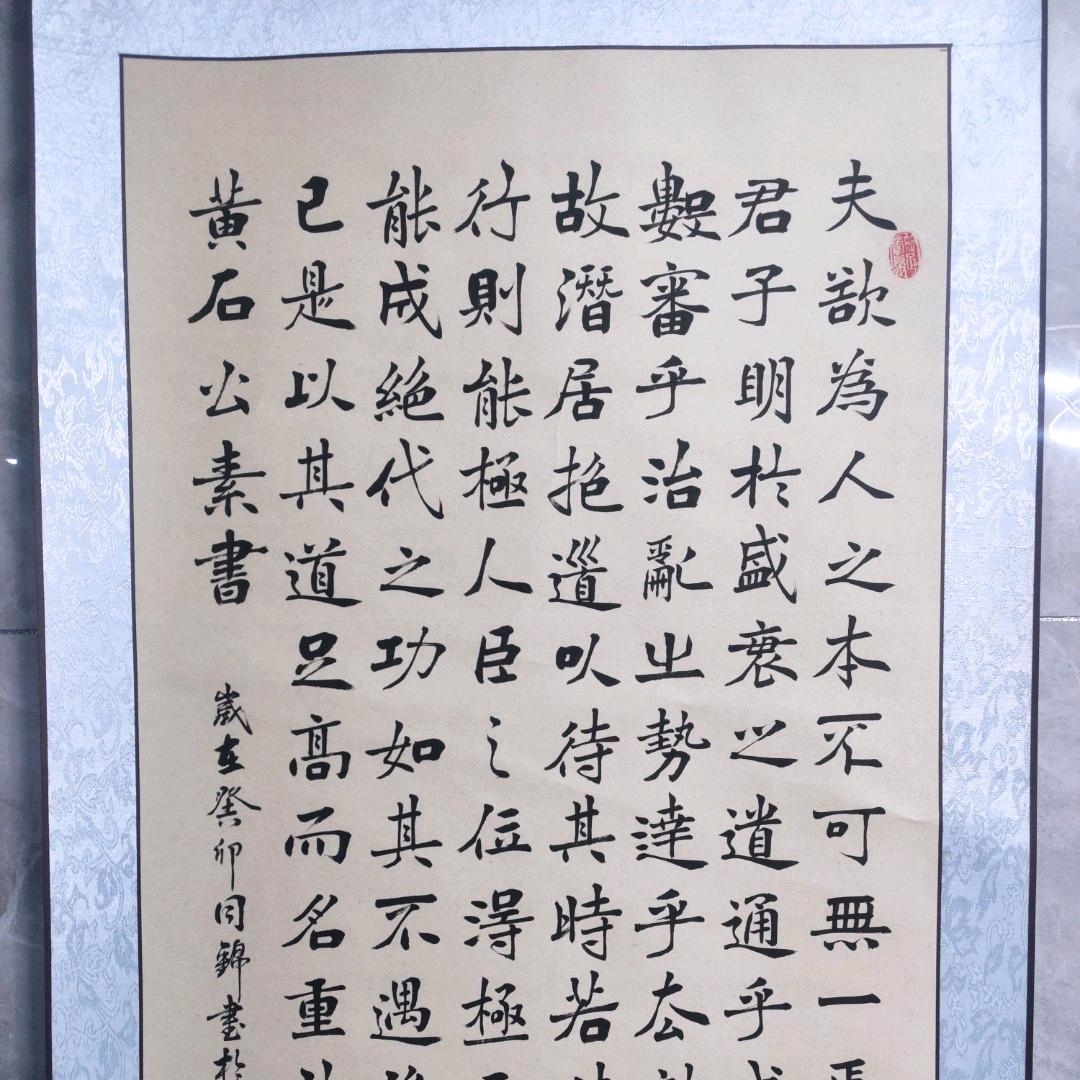 夫欲為人之本不可無一焉
君子明於盛衰之道通乎成
數審乎治亂之勢達乎去就
故潛居抱道以待其時若時
行則能極人臣之位得極而
能成絕代之功如其不遇
已是以其道足高而名重於
黃石公素書
歲在癸卯同錦書於